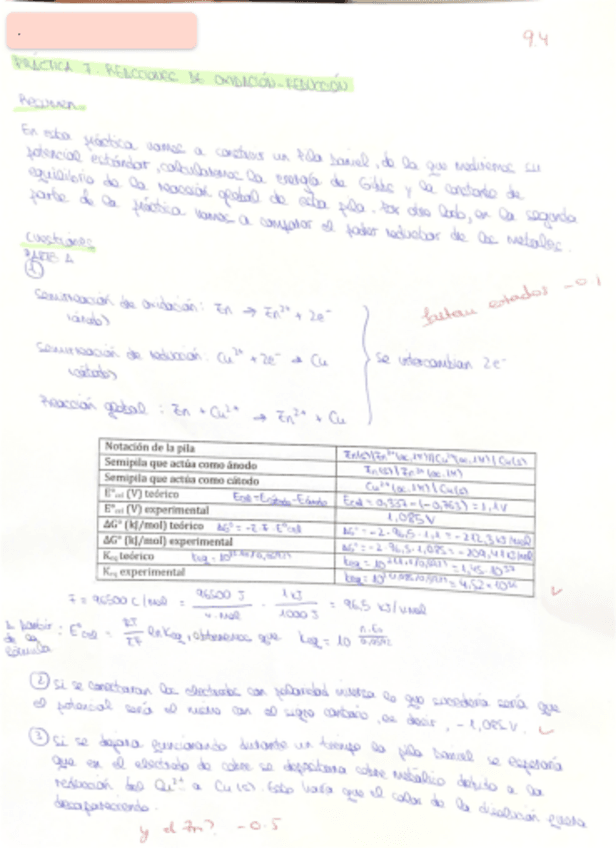 .
9.4
PRÁCTICA 7. REACCIONES DE OXIDACIÓN-REDUCCIÓN
Resumen
En esta práctica vamos a construir un Pila Daniel, de la que mediremos su
potencial estándar, calcularemos la energía de Gibbs y la constante de
equilibrio de la reacción global de esta pila. Por otro lado, en la segunda
parte de la práctica vamos a comparar el poder reductor de los metales.
Cuestiones
PARTE A
1
Semirreacción de oxidación: Zn → Zn2+ + 2e-
(ánodo)
faltan estados -0.1
Semirreacción de reducción: Cu2+ + 2e- → Cu
(cátodo)
Se intercambian 2e-
Reacción global: Zn + Cu2+ → Zn2+ + Cu
Notación de la pila Zn(s)|Zn2+(ac, 1M)||Cu2+(ac, 1M)|Cu(s)
Semipila que actúa como ánodo Zn(s)|Zn2+(ac, 1M)
Semipila que actúa como cátodo Cu2+(ac, 1M)|Cu(s)
E°cel (V) teórico Ecel=Ecátodo-Eánodo Ecel = 0,337-(-0,763) = 1,1V
E°cel (V) experimental 1,085V
ΔG° (kJ/mol) teórico ΔG°=-2·F·E°cel ΔG°=-2·96,5·1,1=-212,3 kJ/mol
ΔG° (kJ/mol) experimental ΔG°=-2·96,5·1,085=-209,4 kJ/mol
Keq teórico
Keq experimental
F = 96500 C/mol = 96500 J / V·mol · 1 kJ / 1000 J = 96,5 kJ/V·mol
A partir de la fórmula: E°cel = RT/ZF ln Keq, obtenemos que Keq = 10 n·E0/0,0592
2 Si se conectaran los electrodos con polaridad inversa lo que sucedería sería que
el potencial sería el mismo con el signo contrario, es decir, -1,085V.
3 Si se dejara funcionando durante un tiempo la pila Daniel se esperaría
que en el electrodo de cobre se depositara cobre metálico debido a la
reducción del Cu2+ a Cu(s). Esto haría que el color de la disolución fuera
desapareciendo.
y el Zn? -0.5